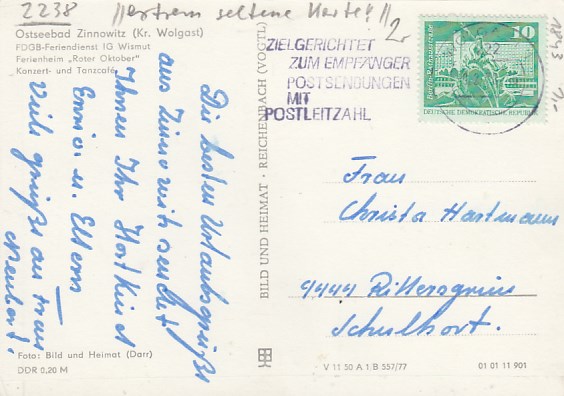 2238 //extrem seltene Karte!! 2,-
Ostseebad Zinnowitz (Kr. Wolgast)
FDGB-Feriendienst IG Wismut
Ferienheim „Roter Oktober"
Konzert- und Tanzcafé
Die besten Urlaubsgrüße
aus Zinnowitz sendet
Ihnen Ihr Hortkind
Enrico u. Eltern
Viele Grüße an Frau
Foto: Bild und Heimat (Darr)
DDR 0,20 M
BILD UND HEIMAT · REICHENBACH (VOGTL)
ZIELGERICHTET
ZUM EMPFÄNGER
POSTSENDUNGEN
MIT
POSTLEITZAHL
10
DEUTSCHE DEMOKRATISCHE REPUBLIK
1843
Frau
Christa Hartmann
9444 Rittersgrün
Schulhort.
V 11 50 A 1 B 557/77
01 01 11 901